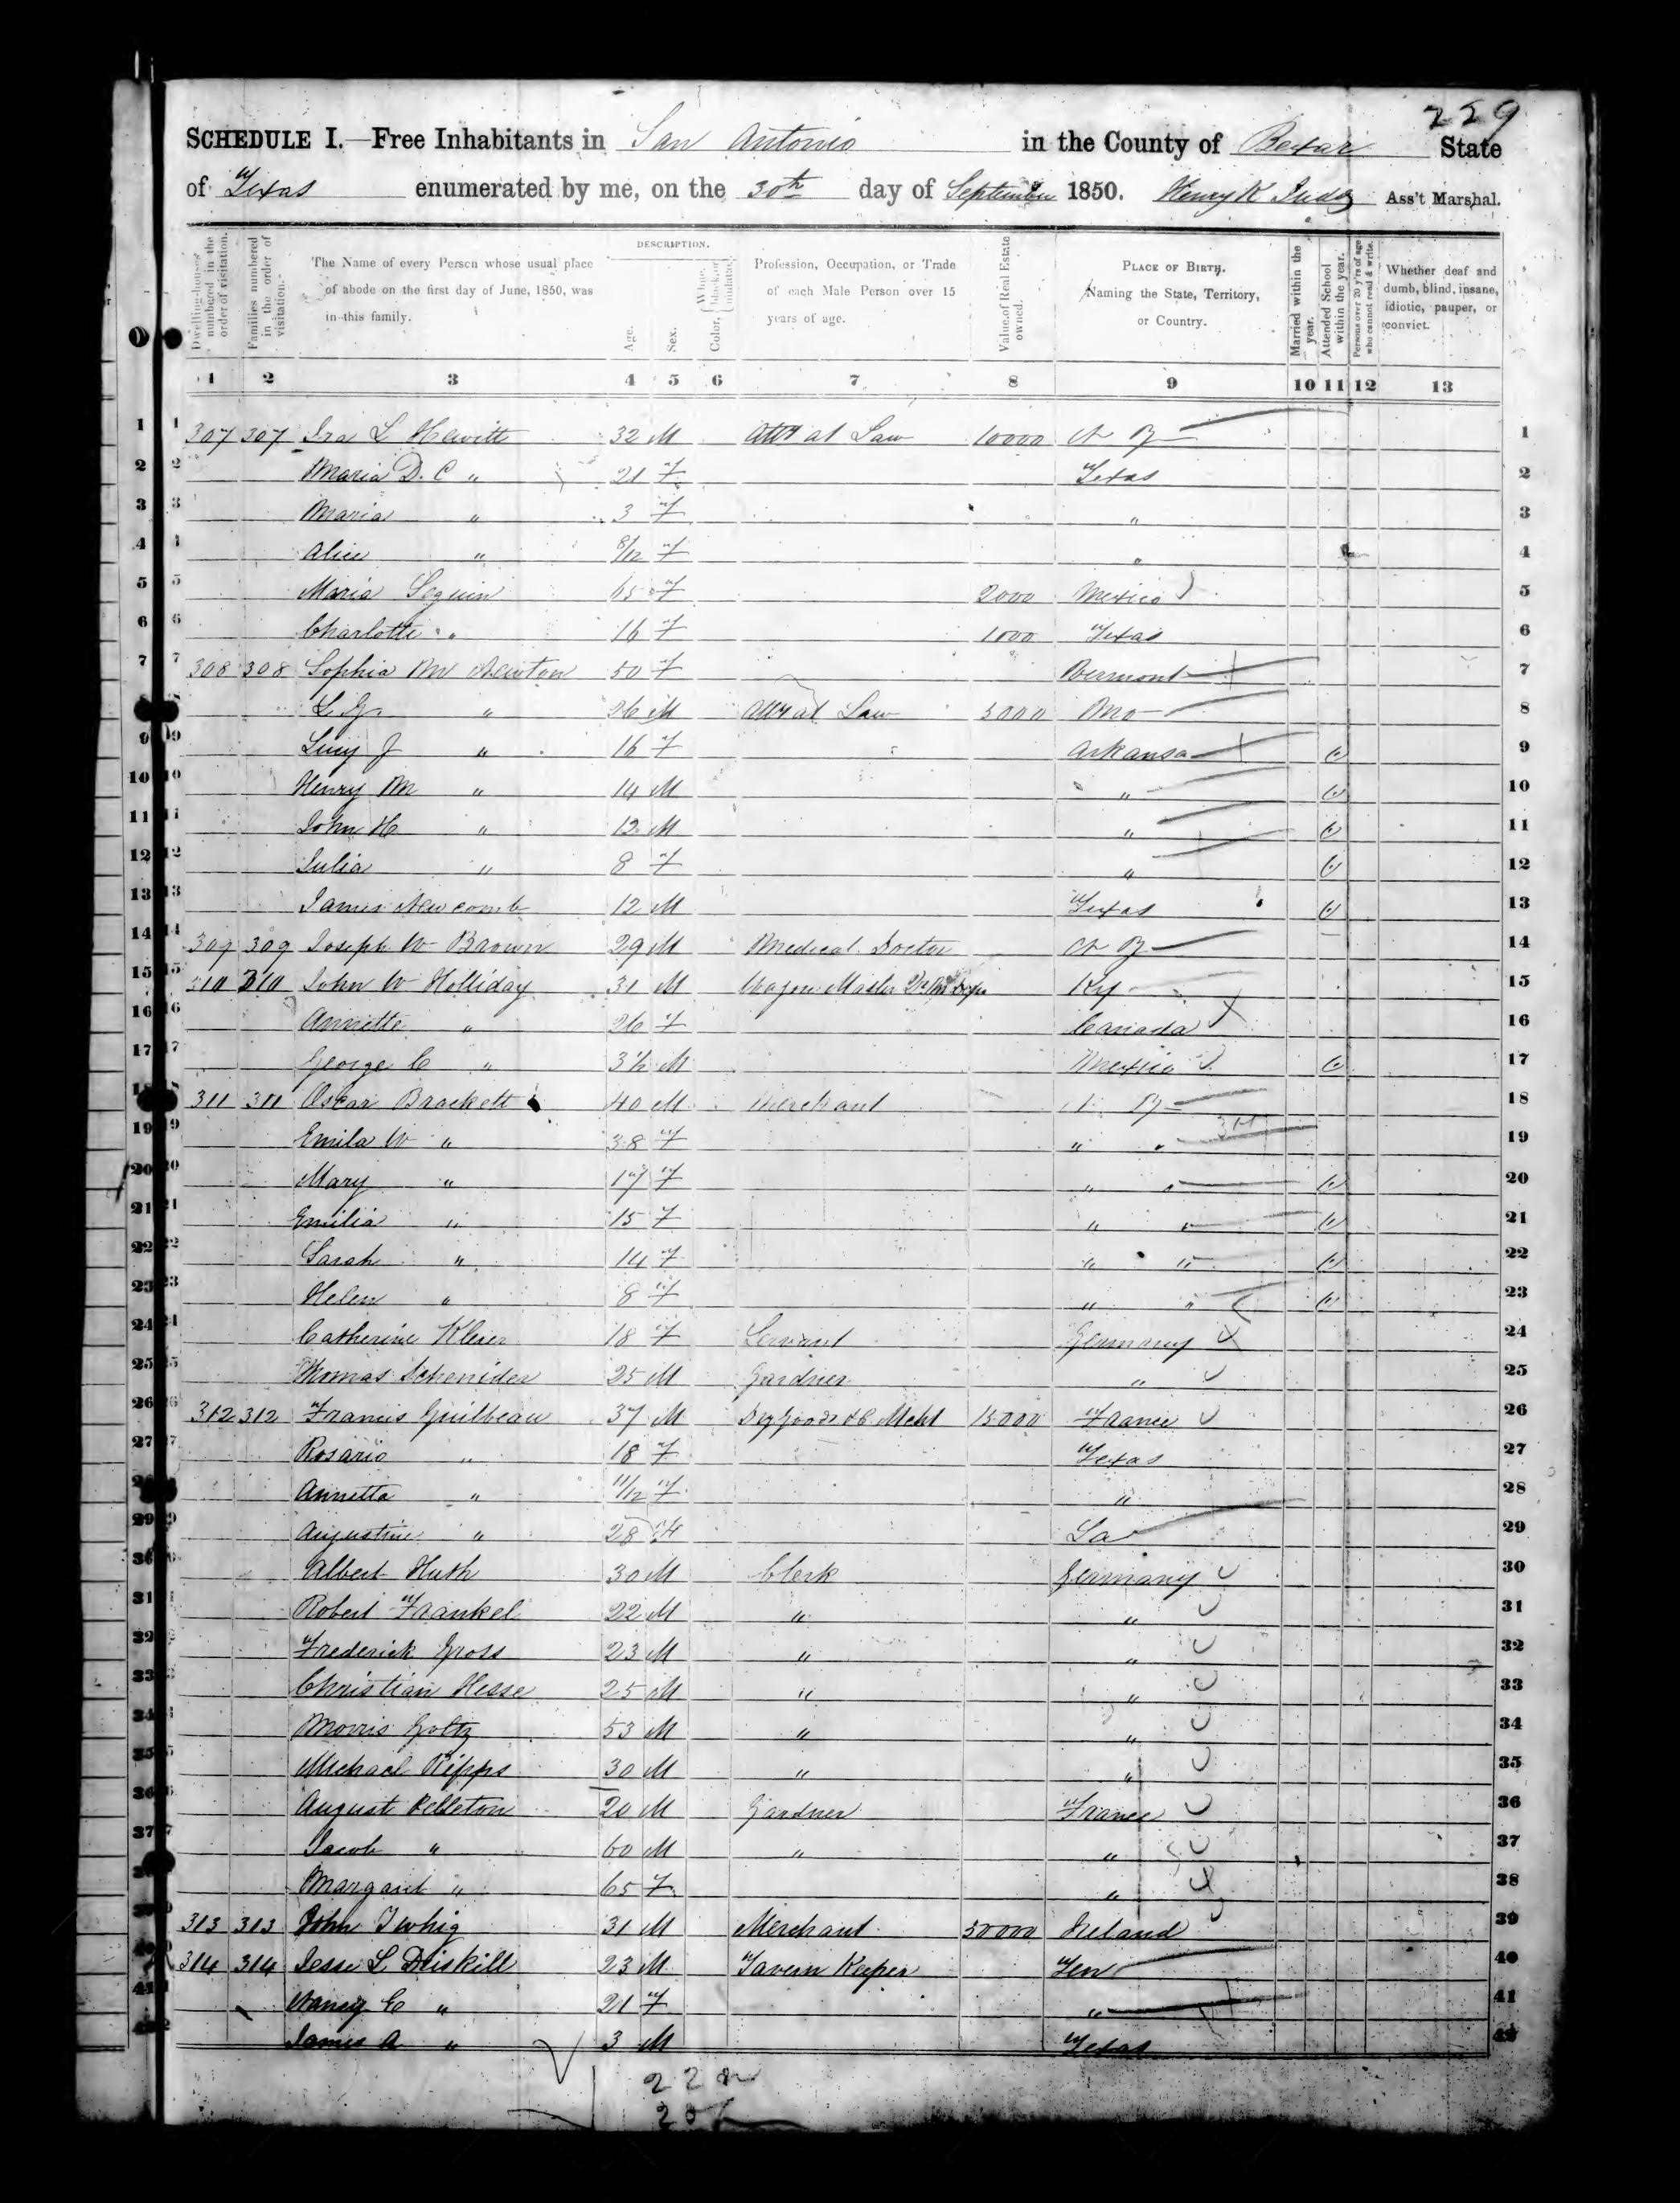 229
SCHEDULE I.—Free Inhabitants in San Antonio in the County of Bexar State
of Texas enumerated by me, on the 30th day of September 1850. Henry K Judd Ass't Marshal.
Dwelling-houses numbered in the order of visitation.
Families numbered in the order of visitation.
The Name of every Person whose usual place of abode on the first day of June, 1850, was in this family.
DESCRIPTION.
Age.
Sex.
Color, White, black, or mulatto.
Profession, Occupation, or Trade of each Male Person over 15 years of age.
Value of Real Estate owned.
PLACE OF BIRTH. Naming the State, Territory, or Country.
Married within the year.
Attended School within the year.
Persons over 20 y'rs of age who cannot read & write.
Whether deaf and dumb, blind, insane, idiotic, pauper, or convict.
1 2 3 4 5 6 7 8 9 10 11 12 13
1 307 307 Ira L Hewitt 32 M Atty at Law 10000 N Y 1
2 Maria D. C " 21 F Texas 2
3 Maria " 3 F " 3
4 Alice " 8/12 F " 4
5 Maria Seguin 65 F 2000 Mexico 5
6 Charlotte " 16 F 1000 Texas 6
7 308 308 Sophia M Newton 50 F Vermont 7
8 L G " 26 M Atty at Law 3000 Mo 8
9 Lucy J " 16 F Arkansa 9
10 Henry M " 14 M " 10
11 John H " 12 M " 11
12 Julia " 8 F " 12
13 James Newcomb 12 M Texas 13
14 309 309 Joseph W Brown 29 M Medical Doctor N Y 14
15 310 310 John W Holliday 31 M Wagon Master Ky 15
16 Annette " 26 F Canada 16
17 George C " 3 1/2 M Mexico 17
18 311 311 Oscar Brackett 40 M Merchant N Y 18
19 Emila W " 38 F " " 19
20 Mary " 17 F " " 20
21 Emilia " 15 F " " 21
22 Sarah " 14 F " " 22
23 Helen " 8 F " " 23
24 Catherine Kleier 18 F Servant Germany 24
25 Thomas Schenider 25 M Gardner " 25
26 312 312 Francis Guilbeau 37 M Dry Goods &c Mcht 15000 France 26
27 Rosario " 18 F Texas 27
28 Annetta " 11/12 F " 28
29 Augustine " 28 La 29
30 Albert Huth 30 M Clerk Germany 30
31 Robert Frankel 22 M " " 31
32 Frederick Gross 23 M " " 32
33 Christian Hesse 25 M " " 33
34 Morris Goltz 53 M " " 34
35 Michael Ripps 30 M " " 35
36 August Pelleton 20 M Gardner France 36
37 Jacob " 60 M " " 37
38 Margaret " 65 F " 38
39 313 313 John Twhig 31 M Merchant 50000 Ireland 39
40 314 314 Jesse L Driskill 23 M Tavern Keeper Ten 40
41 Nancy C " 21 F " 41
42 James A " 3 M Texas 42